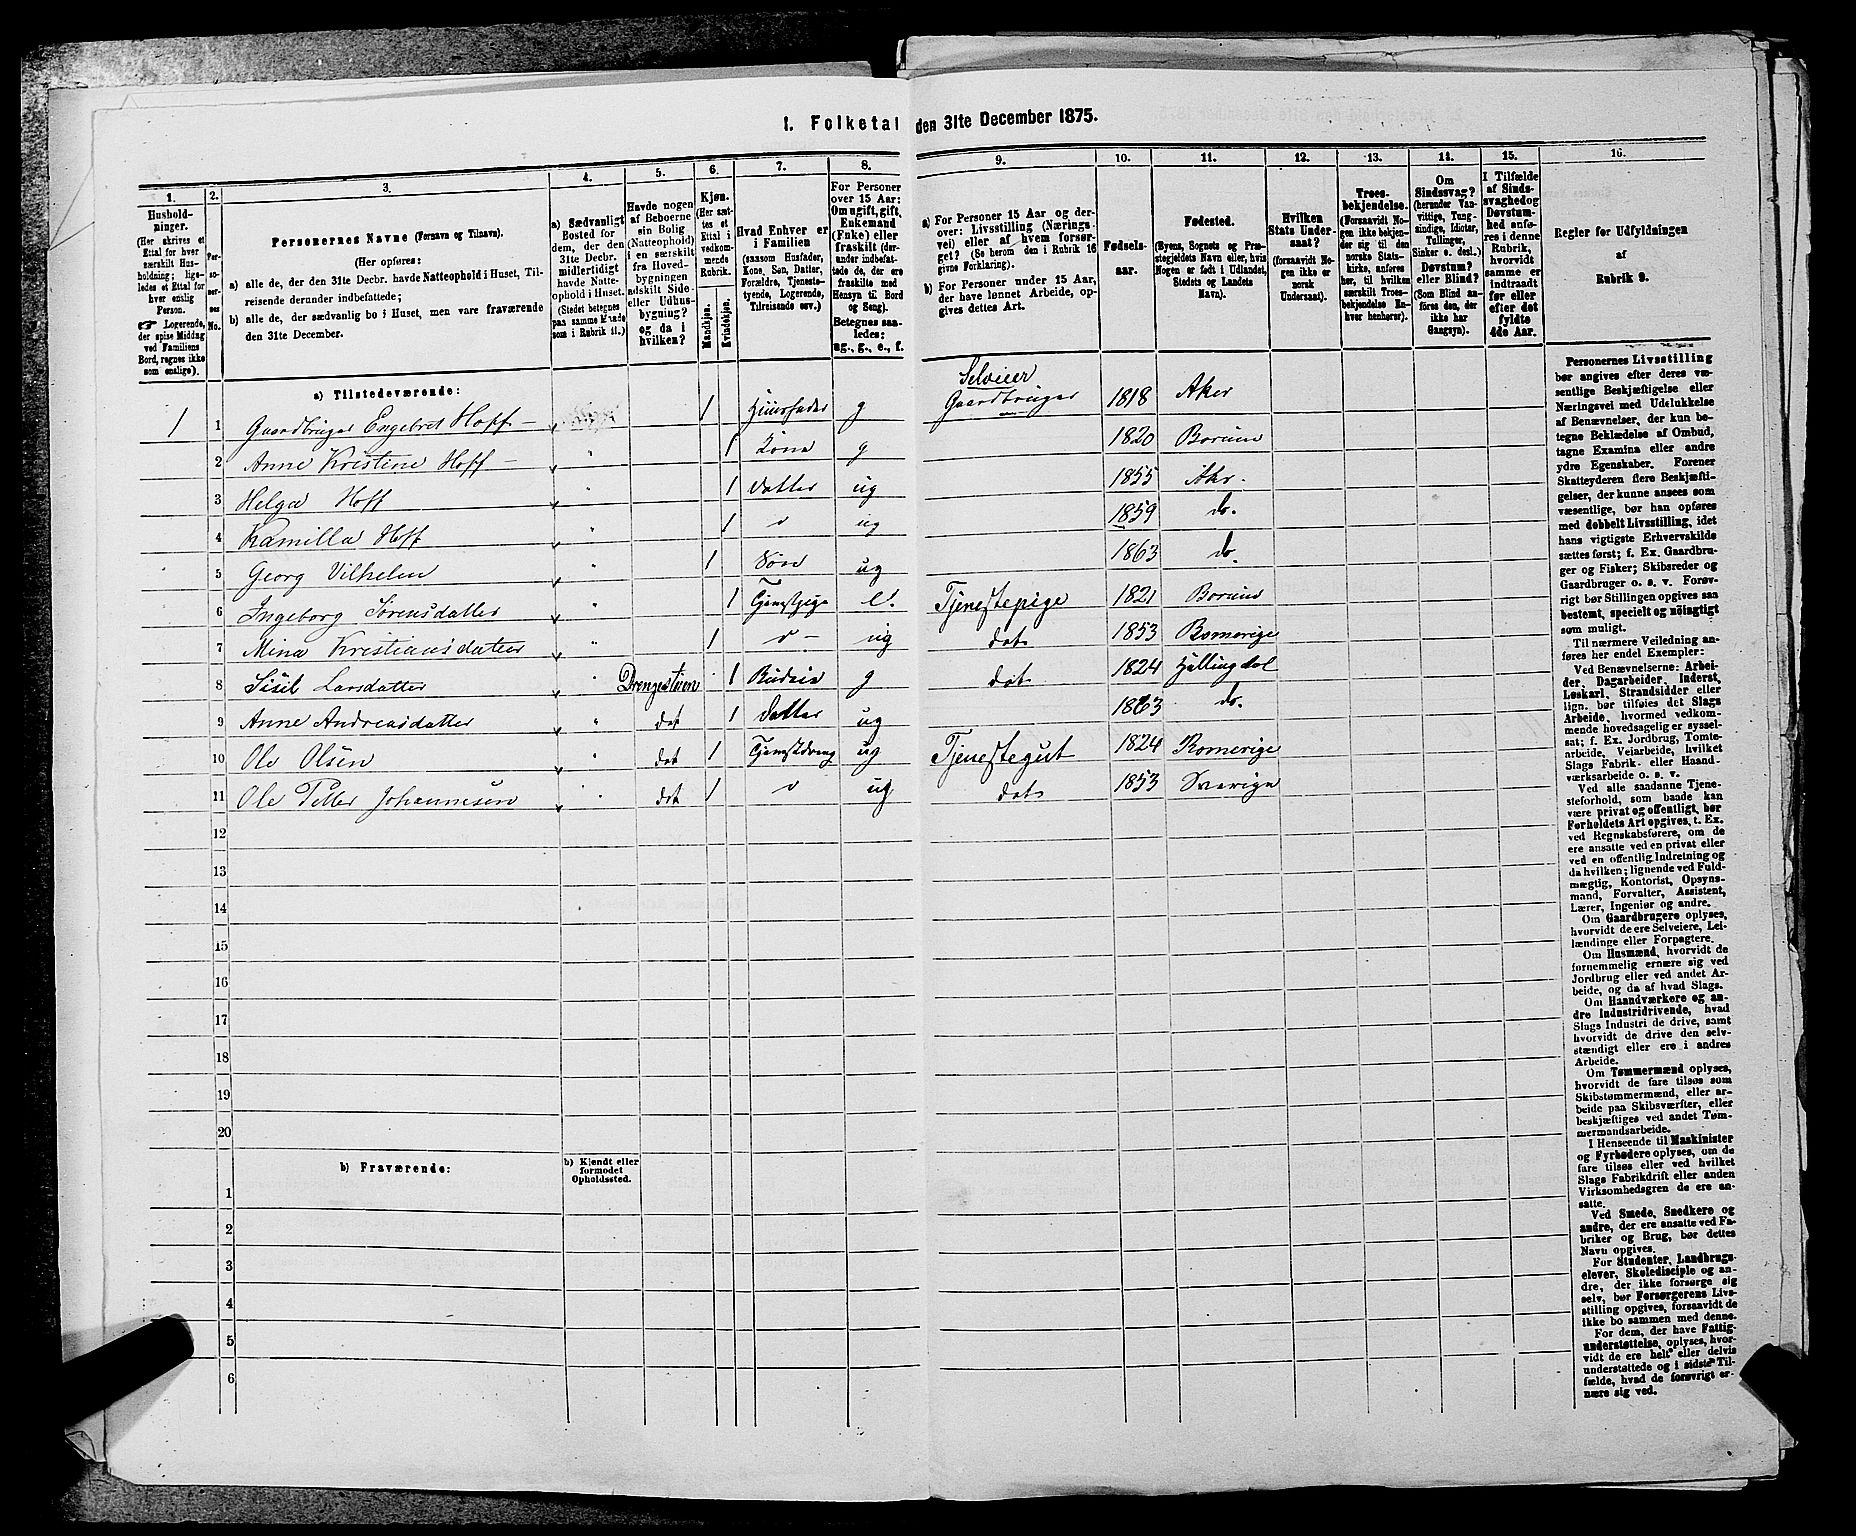 1. Folketal den 31te December 1875.
1.
Hushold-
ninger.
(Her skrives et
Ettal for hver
særskilt Hus-
holdning; lige-
ledes et Ettal for
hver enslig
Person.
☞ Logerende,
der spise Middag
ved Familiens
Bord, regnes ikke
som enslige).
2.
Per-
so-
ner-
nes
No.
3.
Personernes Navne (Fornavn og Tilnavn).
(Her opføres:
a) alle de, der den 31te Decbr. havde Natteophold i Huset, Til-
reisende derunder indbefattede;
b) alle de, der sædvanlig bo i Huset, men vare fraværende
den 31te December.
4.
a) Sædvanligt
Bosted for
dem, der den
31te Decbr.
midlertidigt
havde Natte-
ophold i Huset.
(Stedet betegnes
paa samme Maade
som i Rubrik 11.)
5.
Havde nogen
af Beboerne
sin Bolig
(Natteophold)
i en særskilt
fra Hoved-
bygningen
adskilt Side-
eller Udhus-
bygning?
og da i
hvilken?
6.
Kjøn.
(Her sæt-
tes et
Ettal i
vedkom-
mende
Rubrik.
Mandkjøn.
Kvindekjøn.
7.
Hvad Enhver er
i Familien
(saasom Husfader,
Kone, Søn, Datter,
Forældre, Tjeneste-
tyende, Logerende,
Tilreisende osv.)
8.
For Personer
over 15 Aar:
Om ugift, gift,
Enkemand
(Enke) eller
fraskilt (der-
under indbefat-
tede de, der ere
fraskilte med
Hensyn til Bord
og Seng).
Betegnes saa-
ledes:
ug., g., e., f.
9.
a) For Personer 15 Aar og der-
over: Livsstilling (Nærings-
vei) eller af hvem forsør-
get? (Se herom den i Rubrik 16
givne Forklaring).
b) For Personer under 15 Aar,
der have lønnet Arbeide, op-
gives dettes Art.
10.
Fødsels-
aar.
11.
Fødested.
(Byens, Sognets og Præ-
stegjeldets Navn eller, hvis
Nogen er født i Udlandet,
Stedets og Landets
Navn).
12.
Hvilken
Stats Under-
saat?
(forsaavidt No-
gen ikke er
norsk
Undersaat).
13.
Troes-
bekjendelse.
(Forsaavidt No-
gen ikke bekjen-
der sig til den
norske Stats-
kirke, anføres
her, til hvilken
særskilt Troes-
bekjendelse En-
hver henhører).
14.
Om
Sindssvag?
(herunder Van-
vittige, Tung-
sindige, Idioter,
Tullinger,
Sinker o. desl.)
Døvstum?
eller Blind?
(Som Blind an-
føres den, der
ikke har
Gangsyn).
15.
I Tilfælde
af Sinds-
svaghed og
Døvstum-
hed anfø-
res i denne
Rubrik,
hvorvidt
samme er
indtraadt
før eller
efter det
fyldte
4de Aar.
16.
Regler for Udfyldningen
af
Rubrik 9.
a) Tilstedeværende:
Selveier
1 1 Gaardbruger Engebret Hoff — 1 Huusfader g Gaardbruger 1818 Aker
2 Anne Kristine Hoff — " 1 Kone g 1820 Borum
3 Helga Hoff " 1 Datter ug 1855 Akr.
4 Kamilla Hoff " 1 " ug 1859 do.
5 Georg Vilhelm " 1 Søn ug 1863 do.
6 Ingeborg Sørensdatter " 1 Tjenstpige e. Tjenestepige 1821 Borum
7 Mina Kristiansdatter " 1 " — ug dot 1853 Romerige
8 Sisil Larsdatter " Drengestuen 1 Budeie g dot 1824 Hallingdal
9 Anne Andreasdatter " dot 1 Datter ug 1863 do.
10 Ole Olsen " dot 1 Tjenstdreng ug Tjenestegut 1824 Romerige
11 Ole Petter Johannesen " dot 1 " ug dot 1853 Sverige
12
13
14
15
16
17
18
19
20
b) Fraværende:
b) Kjendt eller
formodet
Opholdssted.
1
2
3
4
5
6
Personernes Livsstilling
bør angives efter deres væ-
sentlige Beskjæftigelse eller
Næringsvei med Udelukkelse
af Benævnelser, der kun be-
tegne Beklædelse af Ombud,
tagne Examina eller andre
ydre Egenskaber. Forener
Skatteyderen flere Beskjæfti-
gelser, der kunne ansees som
væsentlige, bør han opføres
med dobbelt Livsstilling, idet
hans vigtigste Erhvervskilde
sættes først; f. Ex. Gaardbru-
ger og Fisker; Skibsreder og
Gaardbruger o. s. v. Forøv-
rigt bør Stillingen opgives saa
bestemt, specielt og nøiagtigt
som muligt.
Til nærmere Veiledning an-
føres her endel Exempler:
Ved Benævnelserne: Arbei-
der, Dagarbeider, Inderst,
Løskarl, Strandsidder eller
lign. bør tilføies det Slags
Arbeide, hvormed vedkom-
mende hovedsagelig er syssel-
sat; f. Ex. Jordbrug, Tomte-
arbeide, Veiarbeide, hvilket
Slags Fabrik- eller Haand-
værksarbeide o. s. v.
Ved alle saadanne Tjene-
steforhold, som baade kan
være privat og offentligt, bør
Forholdets Art opgives, t. Ex.
ved Regnskabsførere, om de
ere ansatte ved en privat eller
ved en offentlig Indretning og
da hvilken; lignende ved Fuld-
mægtig, Kontorist, Opsyns-
mand, Forvalter, Assistent,
Lærer, Ingeniør og andre.
Om Gaardbrugere oplyses,
hvorvidt de ere Selveiere, Lei-
lændinge eller Forpagtere.
Om Husmænd, hvorvidt de
fornemmelig ernære sig ved
Jordbrug eller ved andet Ar-
beide, og da af hvad Slags.
Om Haandværkere og an-
dre Industridrivende, hvad
Slags Industri de drive, samt
hvorvidt de drive den selv-
stændigt eller ere i andres
Arbeide.
Om Tømmermænd oplyses,
hvorvidt de fare tilsøs som
Skibstømmermænd, eller ar-
beide paa Skibsværfter, eller
beskjæftiges ved andet Tøm-
mermandsarbeide.
I Henseende til Maskinister
og Fyrbødere oplyses, om de
fare tilsøs eller ved hvilket
Slags Fabrikdrift eller anden
Virksomhedsgren de ere an-
satte.
Ved Smede, Snedkere og
andre, der ere ansatte ved Fa-
briker og Brug, bør dettes
Navn opgives.
For Studenter, Landbrugs-
elever, Skoledisciple og an-
dre, der ikke forsørge sig
selv, bør Forsørgerens Livs-
stilling opgives, forsaavidt de
ikke bo sammen med denne.
For dem, der have Fattig-
understøttelse, oplyses, hvor-
vidt de ere helt eller delvis
understøttede og i sidste Til-
fælde, hvad de forøvrigt er-
nære sig ved.